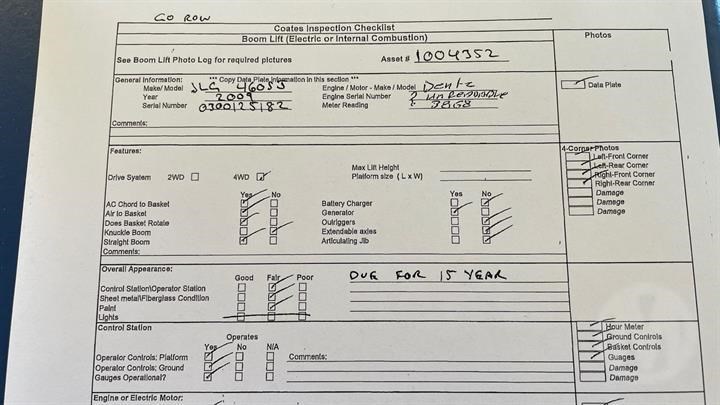 GO ROW
Coates Inspection Checklist
Boom Lift (Electric or Internal Combustion)
Photos
See Boom Lift Photo Log for required pictures Asset # 1004352
General Information: *** Copy Data Plate Information in this section ***
Make/Model JLG 460SJ Engine / Motor - Make / Model Deutz
Data Plate
Year 2009 Engine Serial Number
Serial Number 0300125182 Meter Reading 3868
Comments:
Features:
4-Corner Photos
Left-Front Corner
Left-Rear Corner
Right-Front Corner
Right-Rear Corner
Damage
Damage
Damage
Max Lift Height
Drive System 2WD 4WD Platform size ( L x W)
Yes No Yes No
AC Chord to Basket Battery Charger
Air to Basket Generator
Does Basket Rotate Outriggers
Knuckle Boom Extendable axles
Straight Boom Articulating Jib
Comments:
Overall Appearance:
Good Fair Poor DUE FOR 15 YEAR
Control Station\Operator Station
Sheet metal\Fiberglass Condition
Paint
Lights
Control Station
Operates
Yes No N/A
Operator Controls: Platform Comments:
Operator Controls: Ground
Gauges Operational?
Hour Meter
Ground Controls
Basket Controls
Guages
Damage
Damage
Engine or Electric Motor: